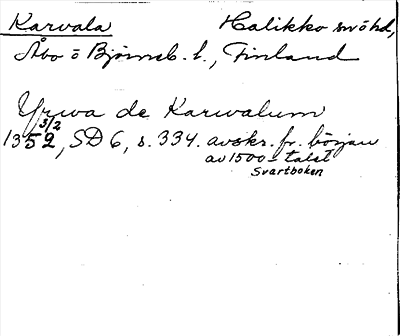 Karvala Halikko snöhd,
Åbo o Björneb. l., Finland
Yrwa de Karwalum
3/2
1352, SD 6, s. 334. avskr. fr. början
av 1500-talet
Svartboken